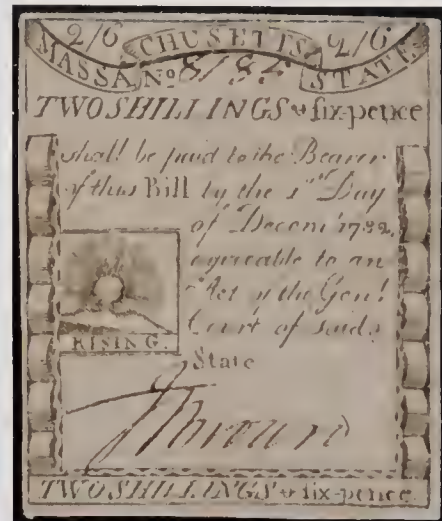 2/6 CHUSETTS 2/6
MASSA No 8185 STATE
TWO SHILLINGS & six-pence
shall be paid to the Bearer
of this Bill by the 1st Day
of Decem' 1782
agreeable to an
Act of the Gen!
Court of said
RISING
State
TWO SHILLINGS & six-pence